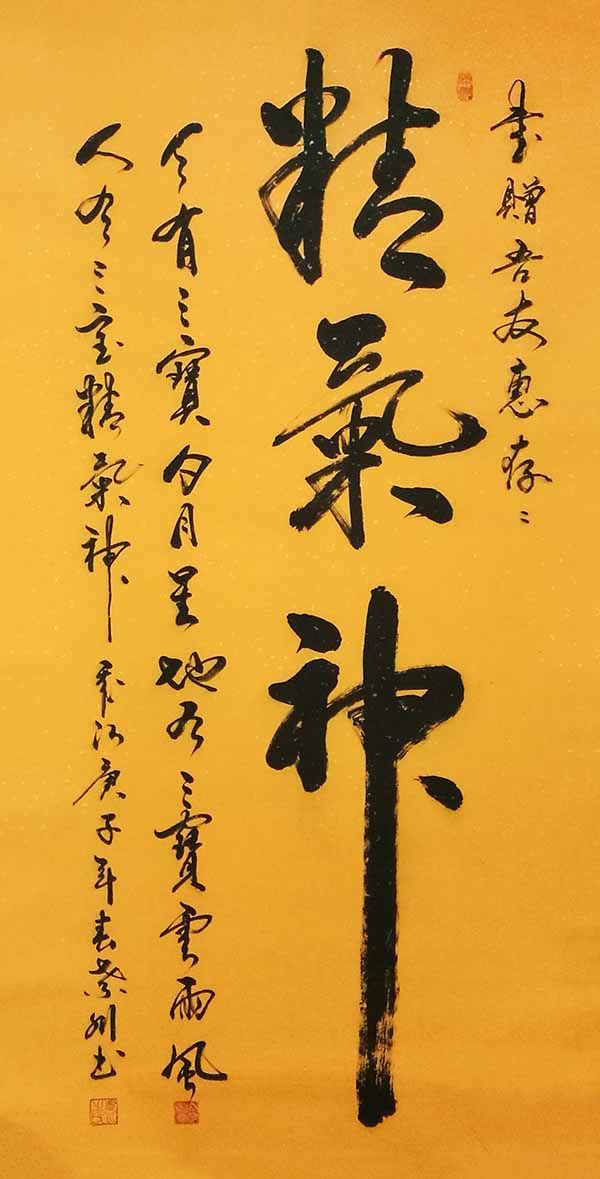 書贈吾友惠存
精氣神
天有三寶日月星地有三寶雲雨風
人有三宝精氣神 歲次庚子年春紫川书